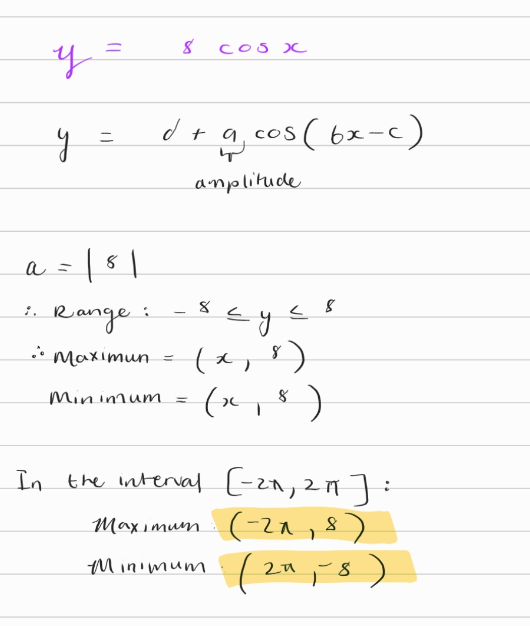 y = 8 cos x
y = d + a cos(bx-c)
amplitude
a = |8|
∴ Range: -8 ≤ y ≤ 8
∴ Maximun = (x, 8)
Minimum = (x, 8)
In the interval [-2π, 2π]:
Maximum (-2π, 8)
Minimum (2π, -8)